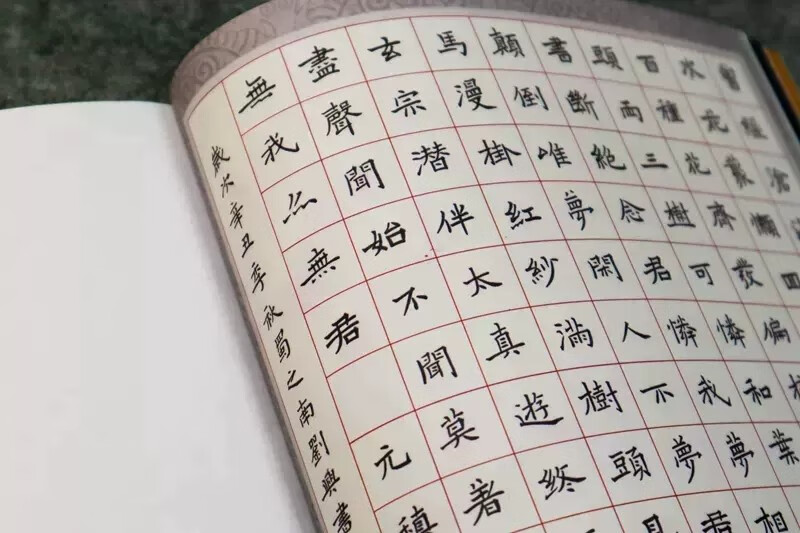 曾經滄
次花叢懶四
百種花齊發偏
頭兩三樹可憐和葉
書斷絕念君憐我夢相
顛倒唯夢閑人不夢君
馬漫掛紅紗滿樹頭
玄宗潛伴太真遊終
盡聲聞始不聞莫著
無我亦無君 元稹
歲次辛丑季秋蜀之南劉興書